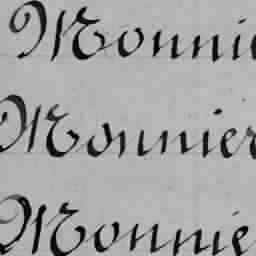 Monnie
Monnier
Monnie